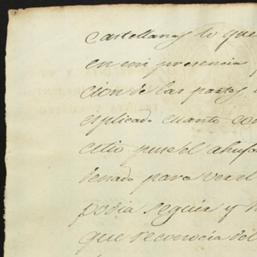 Castellano, lo que
en mi presencia
cion de las partes,
esplicado cuanto con
sitio pues el ahufa
denado para ver el
podia seguir y
que reconocia del